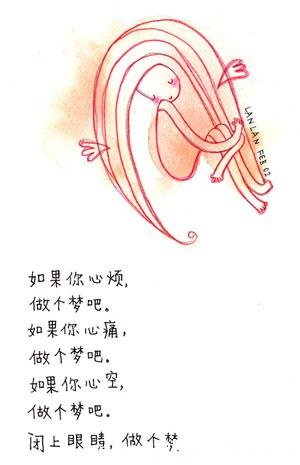 LANLAN FEB 02
如果你心烦,
做个梦吧。
如果你心痛,
做个梦吧。
如果你心空,
做个梦吧。
闭上眼睛,做个梦